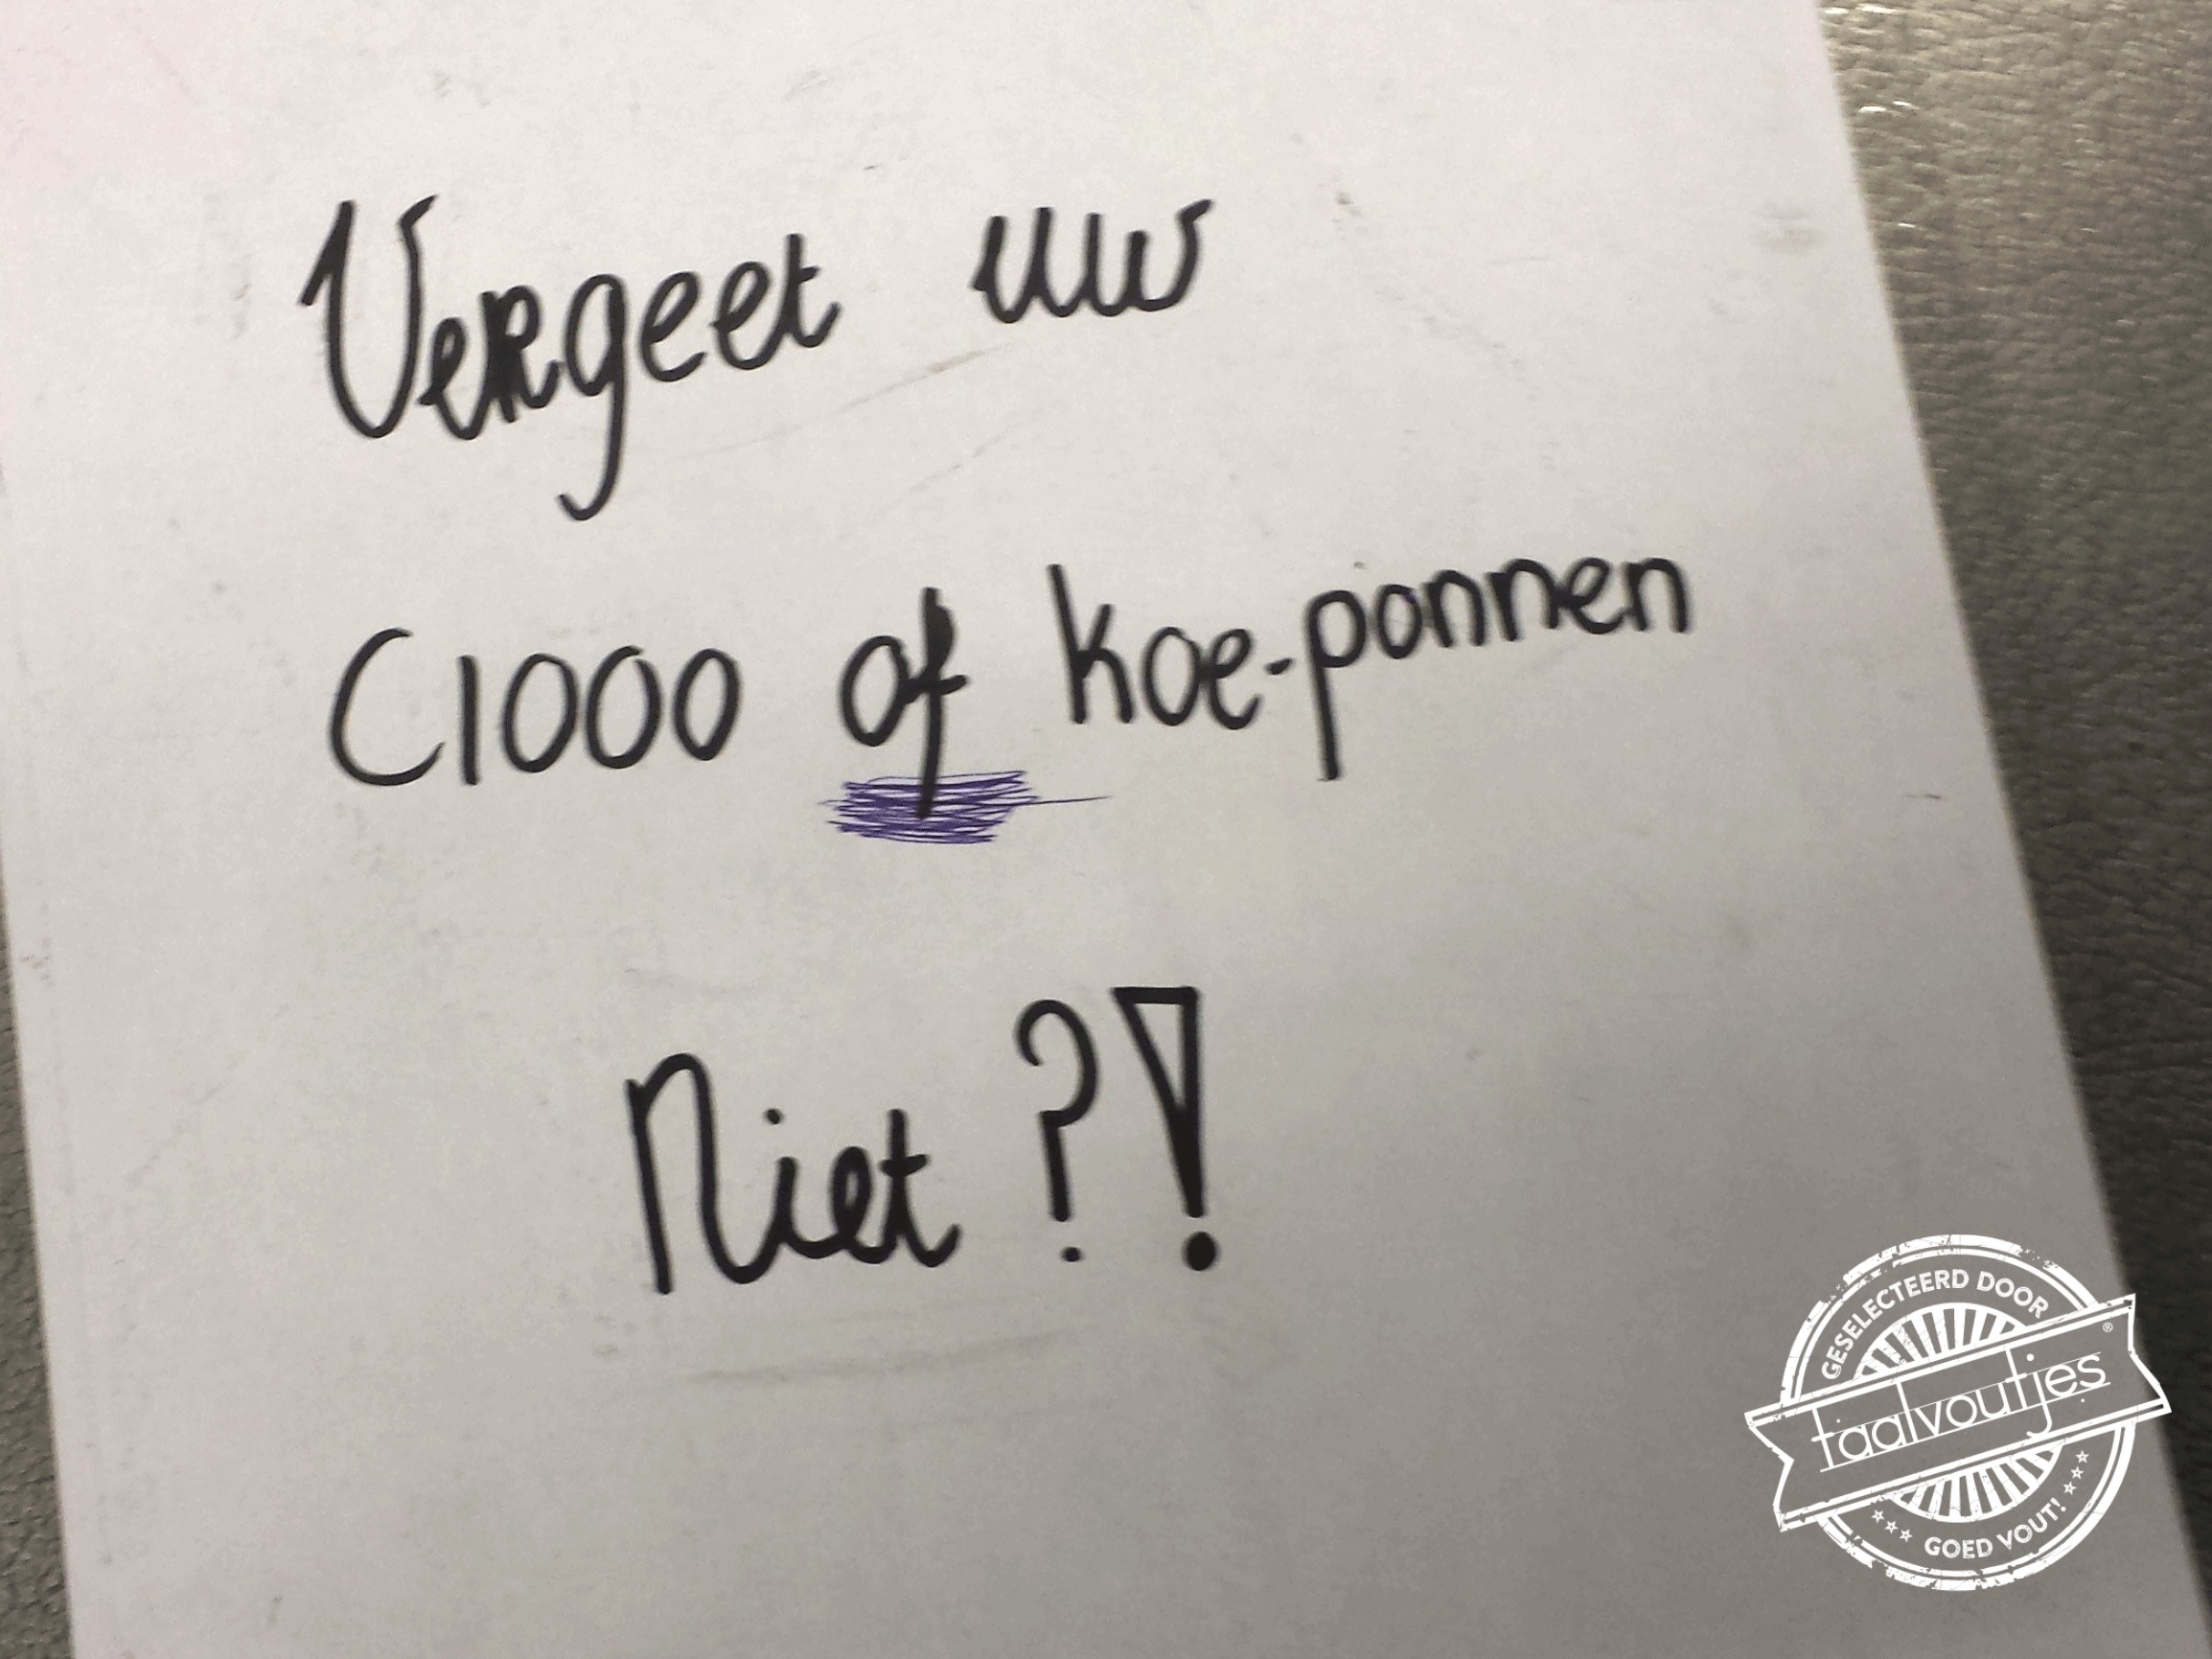 Vergeet uw
C1000 of koe-ponnen
Niet ?!
GESELECTEERD DOOR
taalvoutjes®
GOED VOUT!